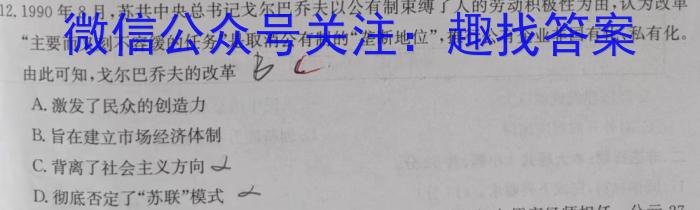 12.1990年8月,苏共中央总书记戈尔巴乔夫以公有制束缚了人的劳动积极性为由,认为改革
微信公众号关注:趣找答案
“主要而又刻不容缓的任务是取消公有制的“垄断地位”,
私有化。
由此可知,戈尔巴乔夫的改革 B C
A.激发了民众的创造力
B.旨在建立市场经济体制
C.背离了社会主义方向
D.彻底否定了“苏联”模式